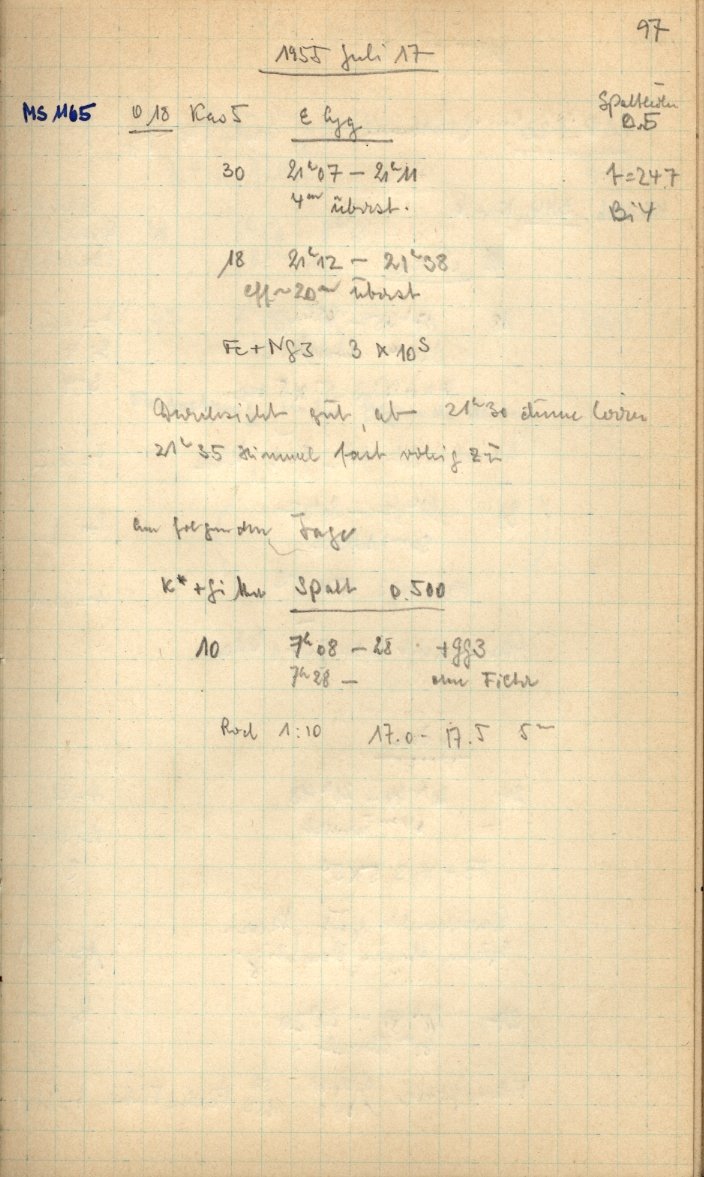 97
1955 Juli 17
MS 1165 0 18 Kao5 ε Cyg Spalt 0.5
30 21ʰ07 — 21ʰ11 t=247
4ᵐ überst. Bi4
18 21ʰ12 — 21ʰ38
eff ~ 20ᵐ überst
Fe+NG3 3 × 10ˢ
Durchsicht gut, ab 21ʰ30 dünne
21ʰ35 Himmel fast völlig zu
am folgenden Tage
K* + Spalt 0.500
10 7ʰ08 — 28 +GG3
7ʰ28 — ohne Filter
1:10 17.0 - 17.5 5ᵐ